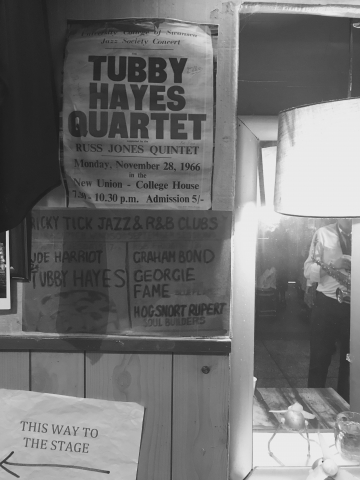 University College of Swansea
Jazz Society Concert
TUBBY
HAYES
QUARTET
RUSS JONES QUINTET
Monday, November 28, 1966
in the
New Union - College House
7.30 - 10.30 p.m. Admission 5/-
RICKY TICK JAZZ & R&B CLUBS
JOE HARRIOT
TUBBY HAYES
GRAHAM BOND
GEORGIE
FAME
HOGSNORT RUPERT
SOUL BUGGERS
THIS WAY TO
THE STAGE